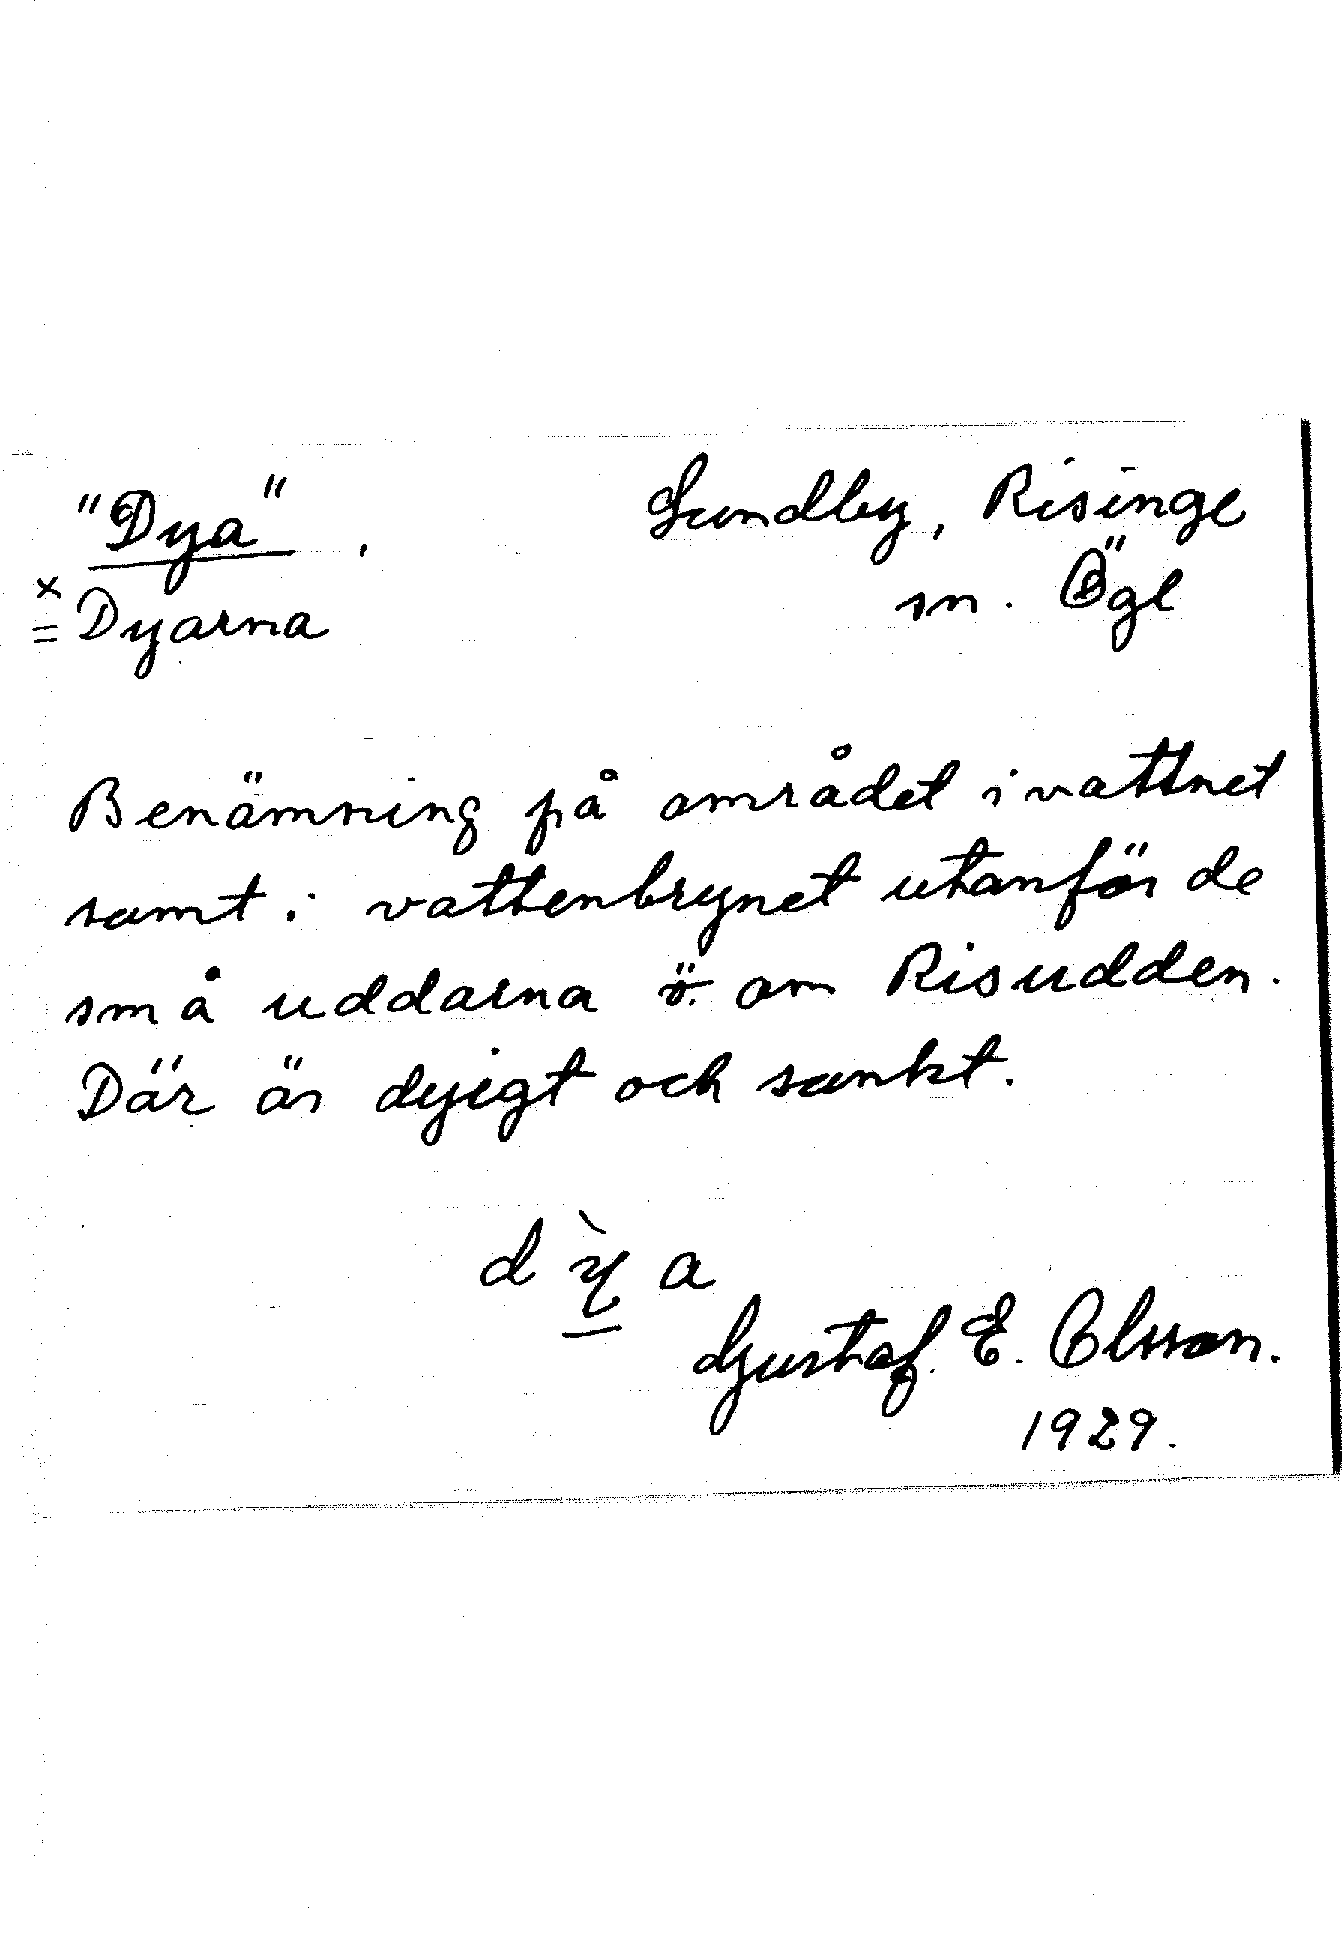 "Dya", Lundby, Risinge
x = Dyarna sn. Ögl
Benämning på området i vattnet
samt i vattenbrynet utanför de
små uddarna ö. om Risudden.
Där är dyigt och sankt.
d ỳ a
Gustaf E. Olsson.
1929.